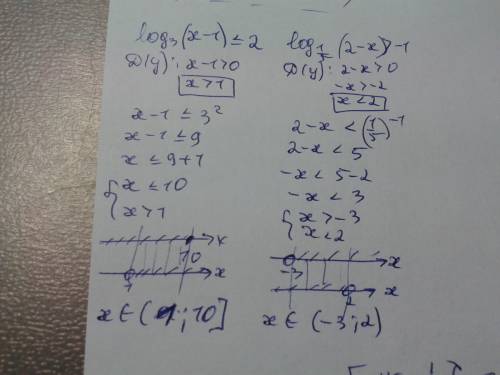 log₃(x-1) ≤ 2
D(y): x-1>0
x>1
x-1 ≤ 3²
x-1 ≤ 9
x ≤ 9+1
{ x ≤ 10
x>1
x
10
x
1
x ∈ (1; 10]
log_{1/5}(2-x)>-1
D(y): 2-x>0
-x>-2
x<2
2-x < (1/5)^{-1}
2-x < 5
-x < 5-2
-x < 3
{ x>-3
x<2
x
-3
x
2
x ∈ (-3; 2)